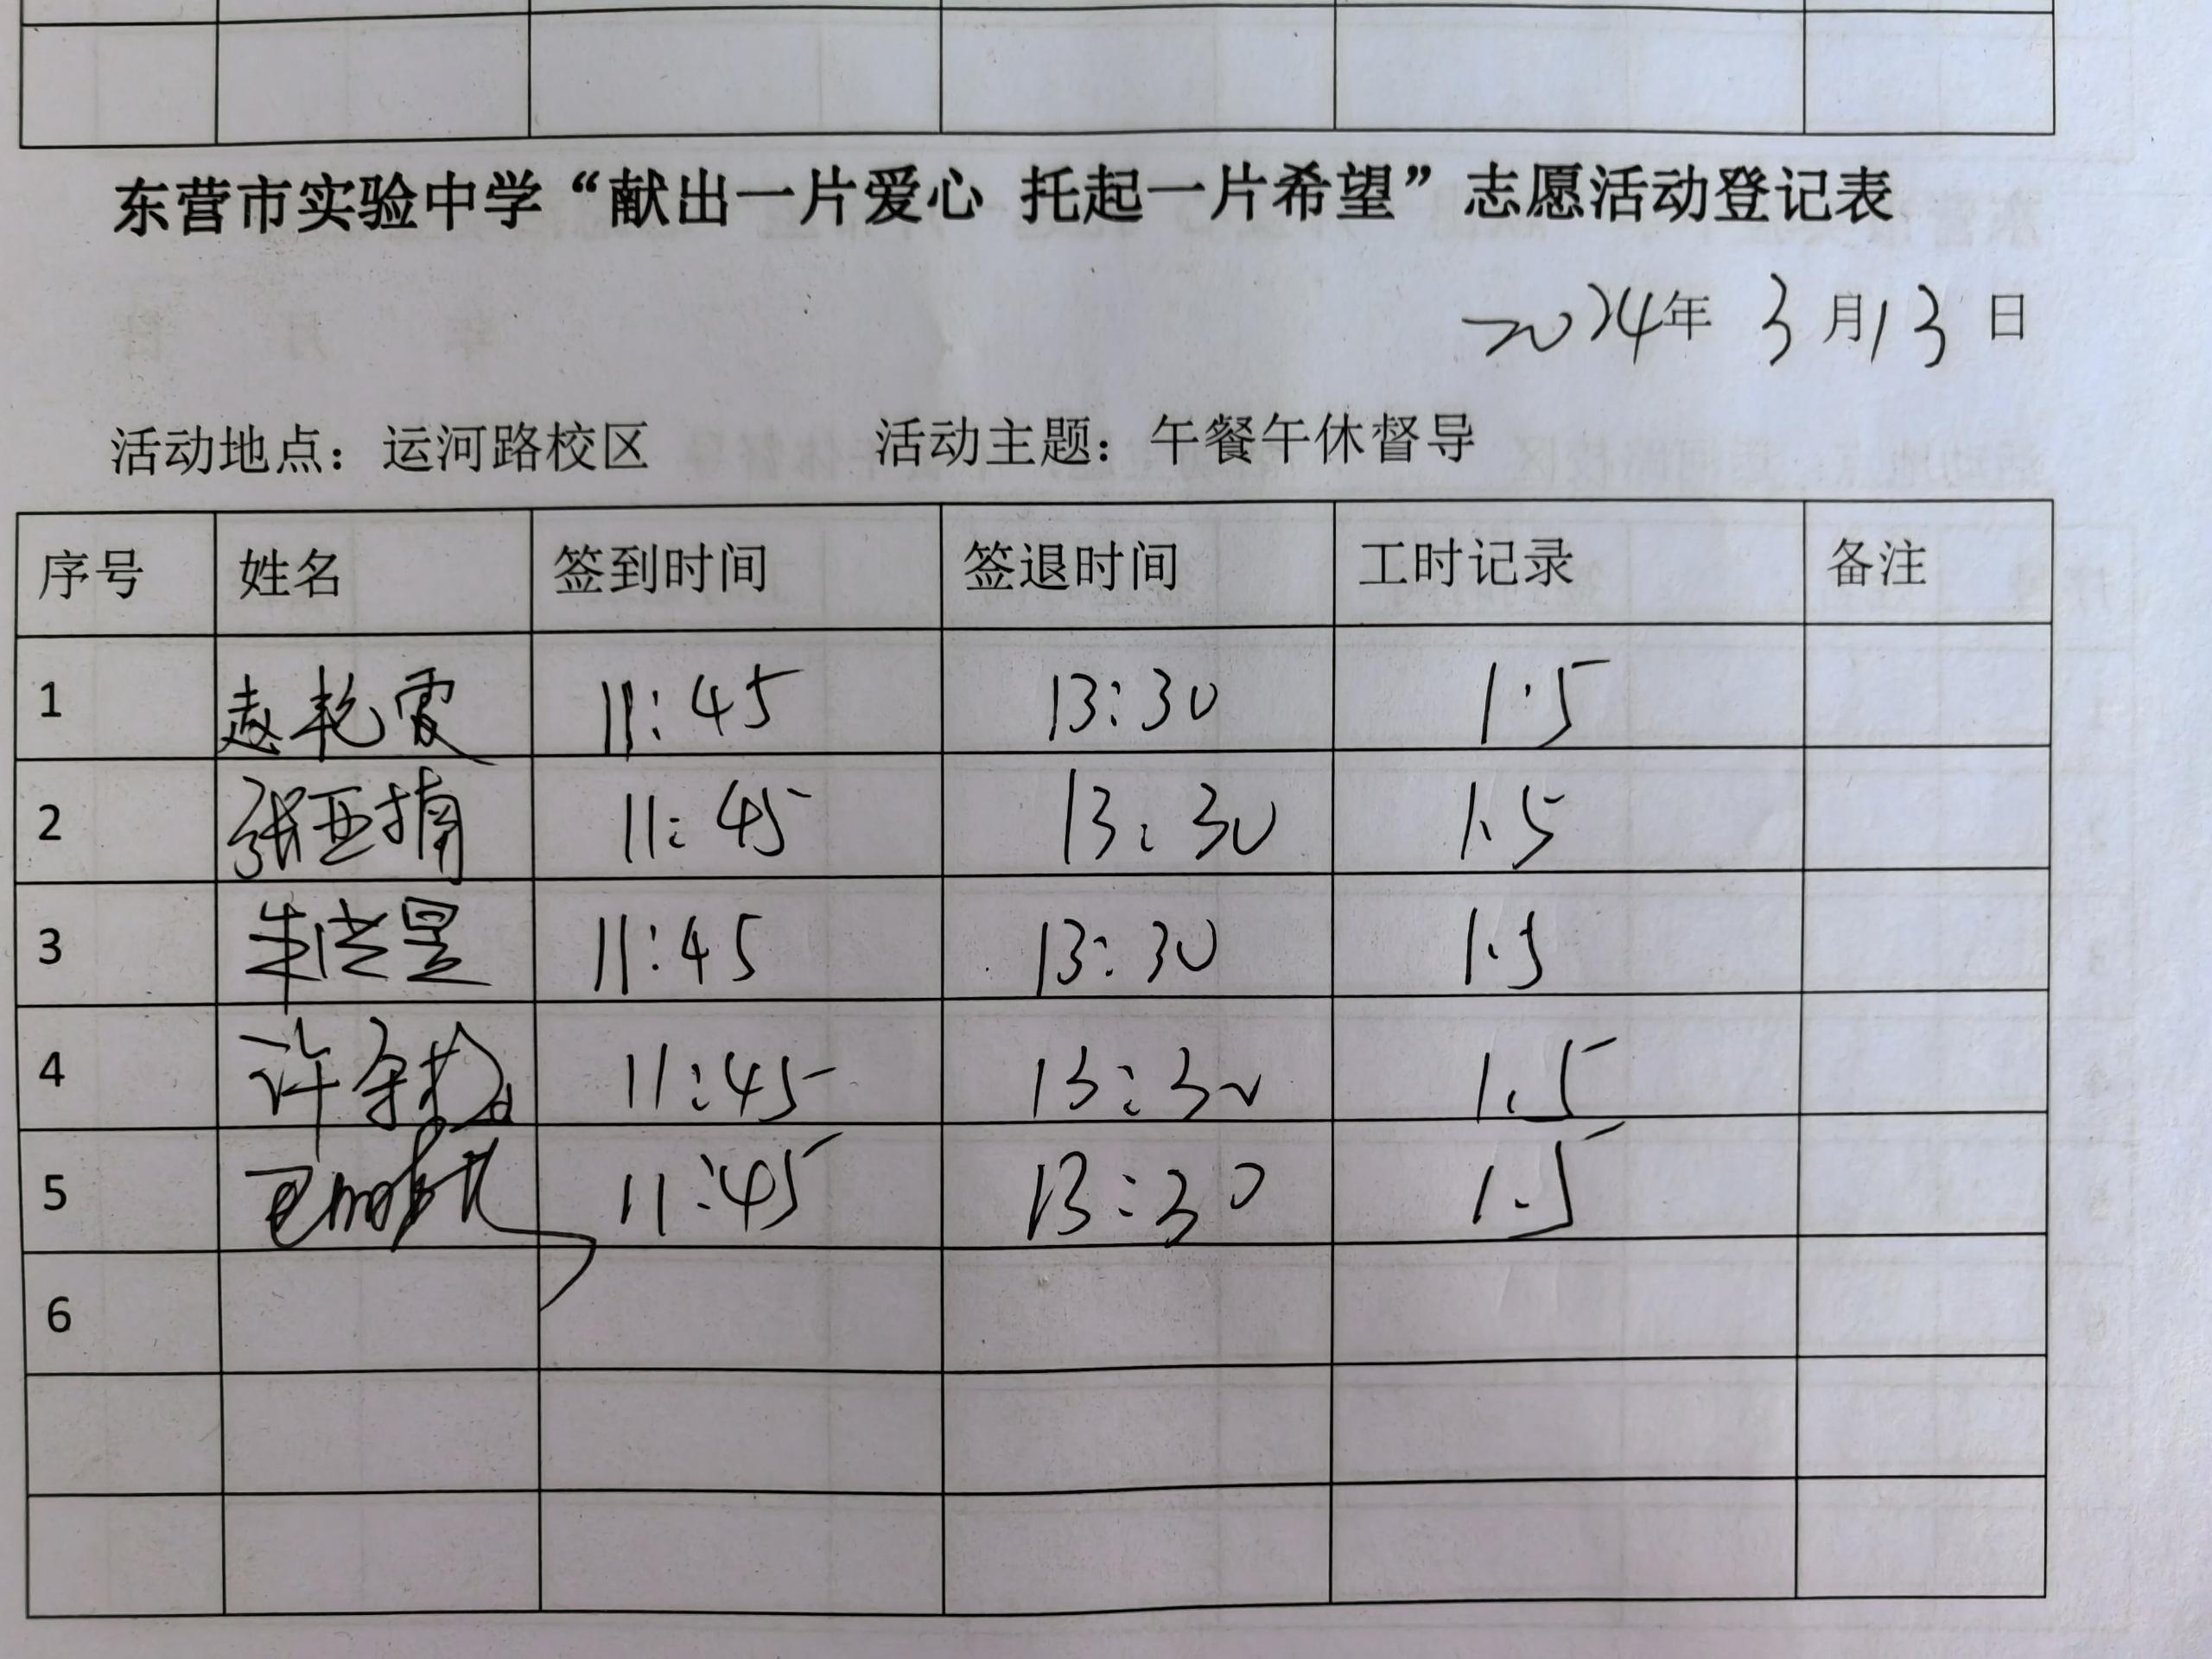 东营市实验中学“献出一片爱心 托起一片希望”志愿活动登记表
2024年 3月13日
活动地点：运河路校区 活动主题：午餐午休督导
序号 姓名 签到时间 签退时间 工时记录 备注
1 赵乾霞 11:45 13:30 1.5
2 张亚楠 11:45 13:30 1.5
3 朱 昱 11:45 13:30 1.5
4 许 11:45 13:30 1.5
5 11:45 13:30 1.5
6